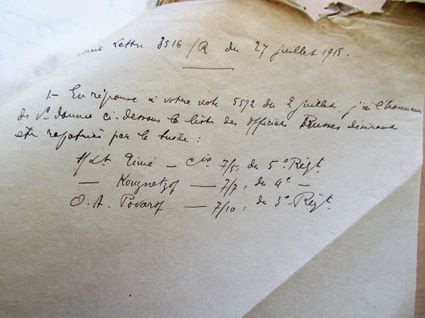 Lettre 3516/R du 27 juillet 1918.
1- En réponse à votre note 5592 du 2 juillet, j'ai l'honneur
de vs donner ci-dessous la liste des officiers Russes désirant
être rapatriés par la Suède :
s/Lt — Cie 7/5, du 5e Régt
— Kougnetzof — 7/7, du 4e —
O. A. Povarof — 7/10, du 5e Régt.